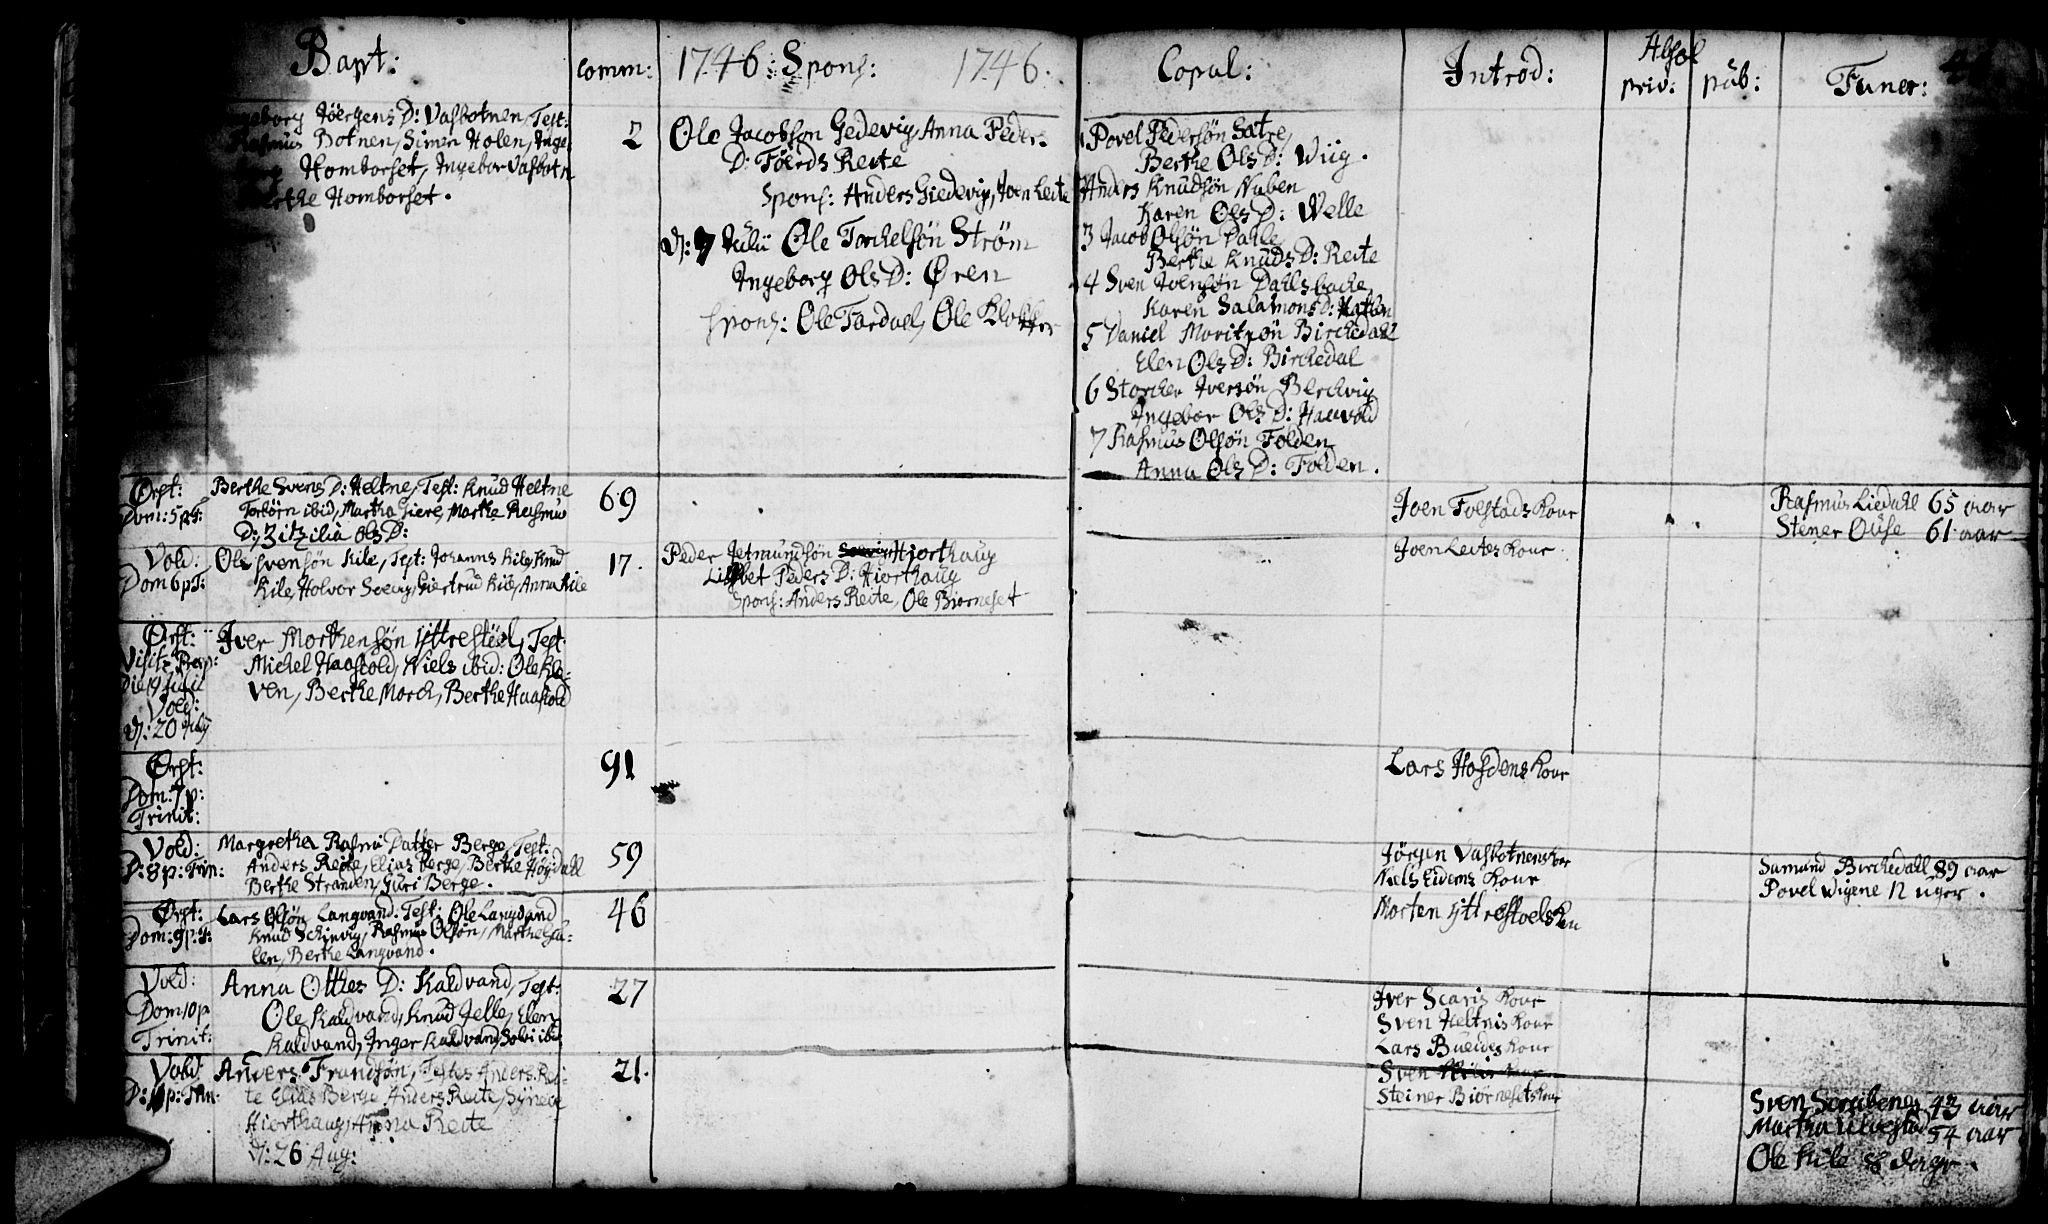 Bapt:
comm:
1746: Spons: 1746.
Copul:
Introd:
Absol
priv:
pub:
Funer:
geborg Jöergens D: Vasbotnen, Test:
Rasmus Botnen, Simen Holen, Inge
Homborset, Ingebor Vasbotn
the Homborset.
2
Ole Jacobsøn Gedevig, Anna Peders
D: Föerds Reite
Spons: Anders Giedevig, Joen Leite
D: 7 Julii Ole Torchelsøn Strøm
Ingeborg Ols D: Øren
Spons: Ole Tardael, Ole Klokker
1 Povel Pedersøn Satre,
Berthe Ols D: Wiig.
Anders Knudsøn Nuben
Karen Ols D: Welle
3 Jacob Olsøn Dahle
Berthe Knuds D: Reite
4 Sven Ivensøn Dahlsbache,
Karen Salamons D:
5 Daniel Moritsøn Birchedahl
Elen Ols D: Birchedal
6 Storcher Iversøn Berdvig
Ingebor Ols D: Hauvold
7 Rasmus Olsøn Folden
Anna Ols D: Folden.
Ørst:
Dom: 5 p T:
Berthe Svens D: Heltne, Test: Knud Heltne
Torbörn ibid, Martha Giere, Marthe Rasmus
D: Zitzilia Ols D:
69
Joen Folstads Kone
Rasmus Liedahl 65 aar
Stener Ouse 61 aar
Vold:
Dom 6 p T:
Ole Svensøn Kile, Test: Johanns Kile, Knud
Kile, Holvor Soevig, Giertrud Kile, Anna Kile
17.
Peder Jetmundsøn Hjorthaug
Lisbet Peders D: Hiorthaug
Spons: Anders Reite, Ole Biorneset
Joen Leites Kone
Ørst:
Visit: Præp:
Die 19 Julii
Vold:
D: 20 July
Iver Morthensøn Yttrestöel, Test.
Michel Haafold, Niels ibid: Ole Kle-
ven, Berthe Morch, Berthe Haafold
Ørst:
Dom: 7 p:
Trinit:
91
Lars Hofdens Kone
Vold:
D: 8 p: Trin:
Margretha Rasmu Datter Berge, Test:
Anders Reite, Elias Berge, Berthe Høydall
Berthe Stranden, Guri Berge.
59
Jörgen Vasbotnens Kone
Niels Eidems Kone
Samund Birchedall 89 aar
Povel Wigene 12 uger.
Ørst:
Dom: 9 p: T:
Lars Olsøn Langvand. Test: Ole Langvand
Knud Schinvig, Rasmus Olsøn, Marthe Hou-
len, Berthe Langvand.
46
Morten Yttrestoels Kon
Vold:
Dom 10 p
Trinit:
Anna Otthes D: Kaldvand, Test:
Ole Kaldvand, Knud Jelle, Elen
Kaldvand, Inger Kaldvand, Solvi ibid
27
Iver Scaris Kone
Sven Heltnis Kone
Lars Bueides Kone
Vold:
D: 11 p: Trin:
Anders Frandsøn, Testes Anders Rei-
te Elias Berge Anders Reite, Syneve
Hiorthaug, Anna Reite
D: 26 Aug:
21.
Sven Kone
Steiner Biørnesets Kone
Sven 43 aar
Martha 54 aar
Ole Kile 8 dage.